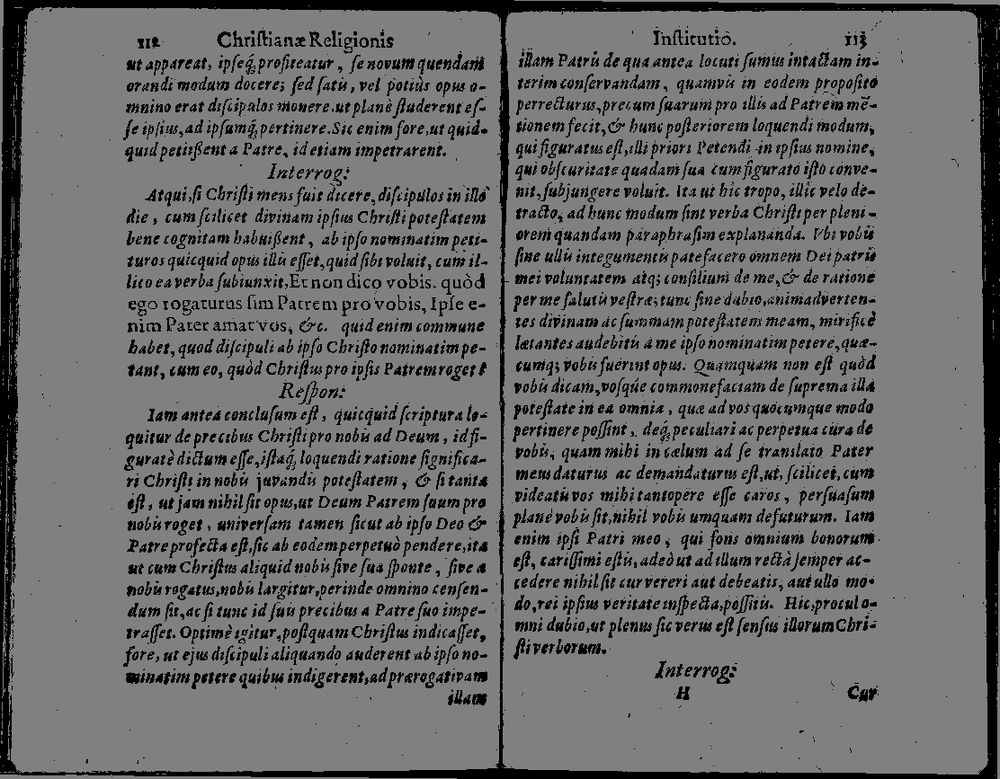 112 Christianæ Religionis
ut appareat, ipseq́; profiteatur, se novum quendam
orandi modum docere; sed satis, vel potiùs opus o-
mnino erat discipulos monere, ut planè studerent es-
se ipsius, ad ipsumq́; pertinere. Sic enim fore, ut quid-
quid petiissent a Patre, id etiam impetrarent.
Interrog:
Atqui, si Christi mens fuit dicere, discipulos in illo
die, cum scilicet divinam ipsius Christi potestatem
bene cognitam habuissent, ab ipso nominatim peti-
turos quicquid opus illis esset, quid sibi voluit, cum il-
lico ea verba subiunxit, Et non dico vobis. quòd
ego rogaturus sim Patrem pro vobis, Ipse e-
nim Pater amat vos, &c. quid enim commune
habet, quod discipuli ab ipso Christo nominatim pe-
tant, cum eo, quòd Christus pro ipsis Patrem roget?
Respon:
Iam anteà conclusum est, quicquid scriptura lo-
quitur de precibus Christi pro nobis ad Deum, id fi-
guratè dictum esse, istaq́; loquendi ratione significa-
ri Christi in nobis juvandis potestatem, & si tanta
est, ut jam nihil sit opus, ut Deum Patrem suum pro
nobis roget, universam tamen sicut ab ipso Deo &
Patre profecta est, sic ab eodem perpetuò pendere, ita
ut cum Christus aliquid nobis sive sua sponte, sive a
nobis rogatus, nobis largitur, perinde omnino censen-
dum sit, ac si tunc id suis precibus a Patre suo impe-
trasset. Optimè igitur, postquam Christus indicasset,
fore, ut ejus discipuli aliquando auderent ab ipso no-
minatim petere quibus indigerent, ad prærogativam
illam
Institutio. 113
illam Patris de qua antea locuti sumus intactam in-
terim conservandam, quamvis in eodem proposito
perrecturus, precum suarum pro illis ad Patrem mē-
tionem fecit, & hunc posteriorem loquendi modum,
qui figuratus est, illi priori Petendi in ipsius nomine,
qui obscuritate quadam sua cum figurato isto conve-
nit, subjungere voluit. Ita ut hic tropo, illic velo de-
tracto, ad hunc modum sint verba Christi per pleni-
orem quandam paraphrasim explananda. Vbi vobis
sine ullis integumentis patefacero omnem Dei patris
mei voluntatem atq; consilium de me, & de ratione
per me salutis vestræ; tunc sine dubio, animadverten-
tes divinam ac summam potestatem meam, mirificè
lætantes audebitis a me ipso nominatim petere, quæ-
cumq; vobis fuerint opus. Quamquam non est quòd
vobis dicam, vosque commonefaciam de suprema illa
potestate in ea omnia, quæ ad vos quocumque modo
pertinere possint, deq́; peculiari ac perpetua cura de
vobis, quam mihi in cælum ad se translato Pater
meus daturus ac demandaturus est, ut, scilicet, cum
videatis vos mihi tantopere esse caros, persuasum
planè vobis sit, nihil vobis umquam defuturum. Iam
enim ipsi Patri meo, qui fons omnium bonorum
est, carissimi estis, adeò ut ad illum rectà semper ac-
cedere nihil sit cur vereri aut debeatis, aut ullo mo-
do, rei ipsius veritate inspecta, possitis. Hic, procul o-
mni dubio, ut plenus sic verus est sensus illorum Chri-
sti verborum.
Interrog:
H Cur